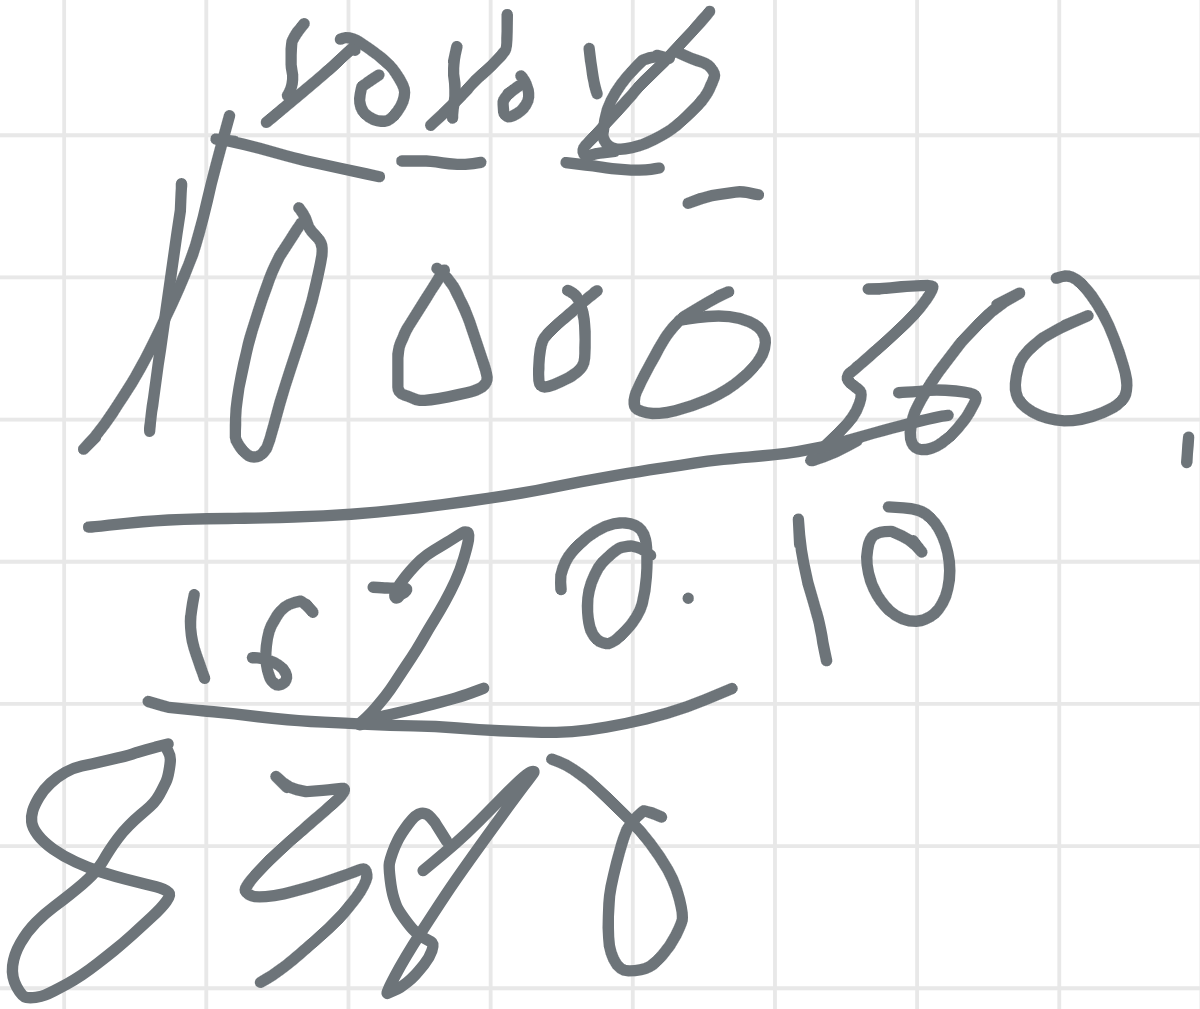 10 10 10
10000 360
1620. 10
8380